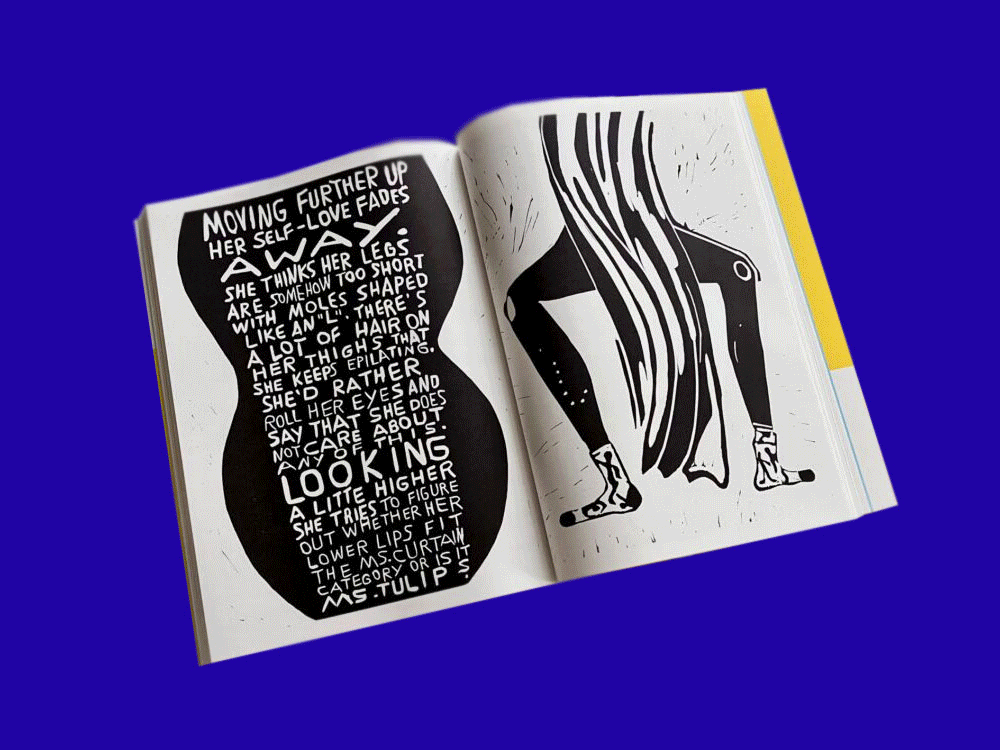 MOVING FURTHER UP
HER SELF-LOVE FADES
AWAY.
SHE THINKS HER LEGS
ARE SOMEHOW TOO SHORT
WITH MOLES SHAPED
LIKE AN "L". THERE'S
A LOT OF HAIR ON
HER THIGHS THAT
SHE KEEPS EPILATING.
SHE'D RATHER
ROLL HER EYES AND
SAY THAT SHE DOES
NOT CARE ABOUT
ANY OF THIS.
LOOKING
A LITTE HIGHER
SHE TRIES TO FIGURE
OUT WHETHER HER
LOWER LIPS FIT
THE MS.CURTAIN
CATEGORY OR IS IT
MS.TULIP'S?